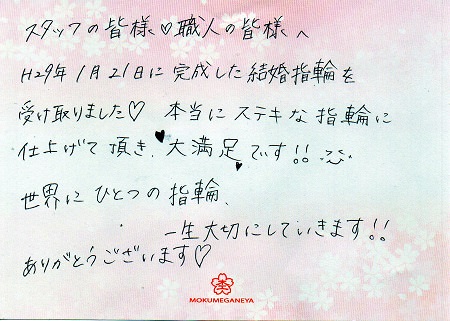 スタッフの皆様♡職人の皆様へ
H29年1月21日に完成した結婚指輪を
受け取りました♡ 本当にステキな指輪に
仕上げて頂き、大満足です!!
世界にひとつの指輪、
一生大切にしていきます!!
ありがとうございます♡
MOKUMEGANEYA